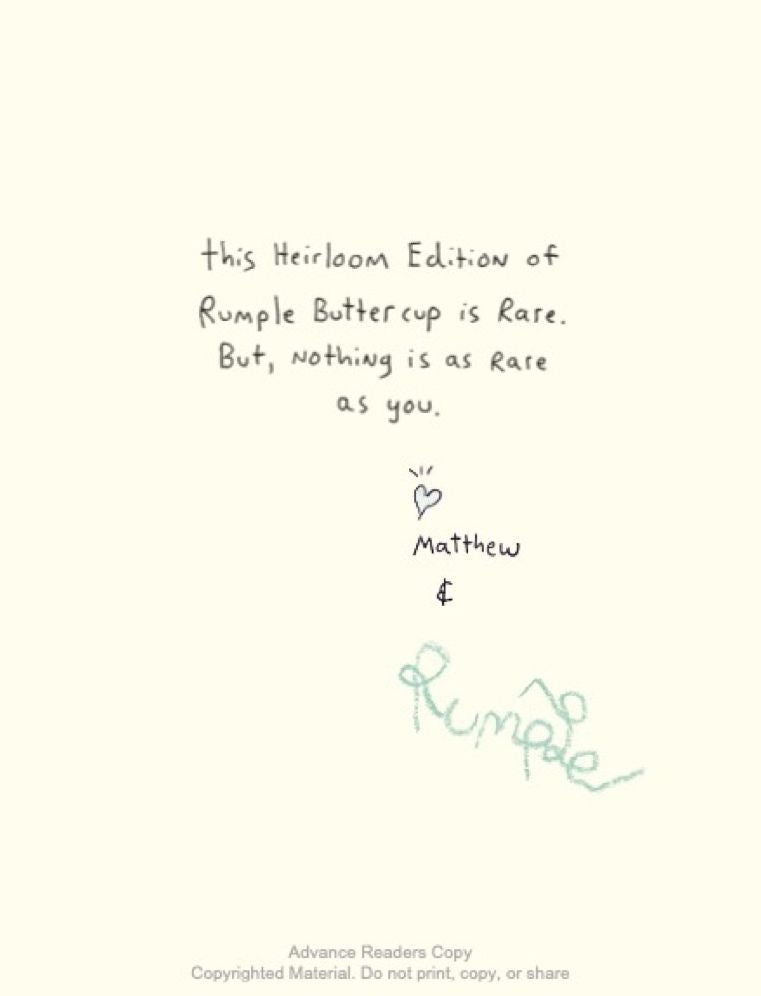 this Heirloom Edition of
Rumple Buttercup is Rare.
But, Nothing is as Rare
as you.
Matthew
&
Rumple
Advance Readers Copy
Copyrighted Material. Do not print, copy, or share